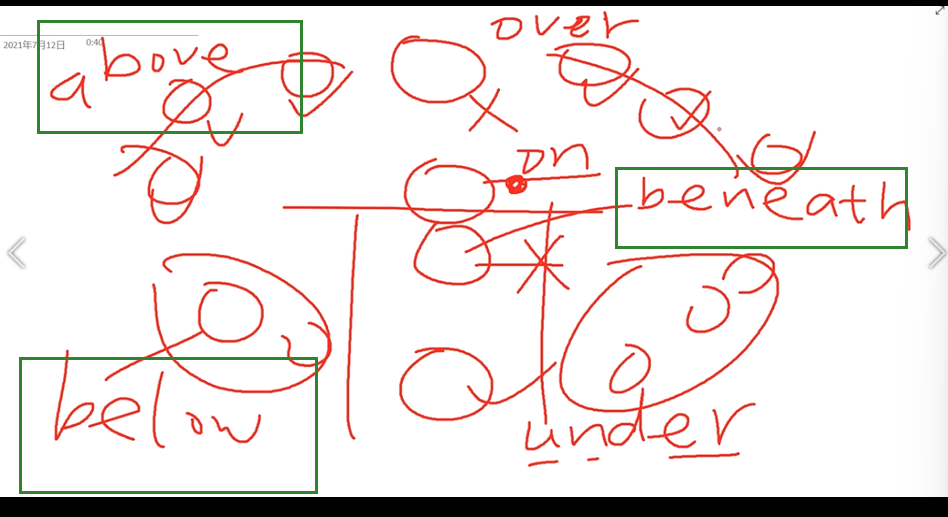 over
2021年7月12日 0:40
above
on
beneath
below
under